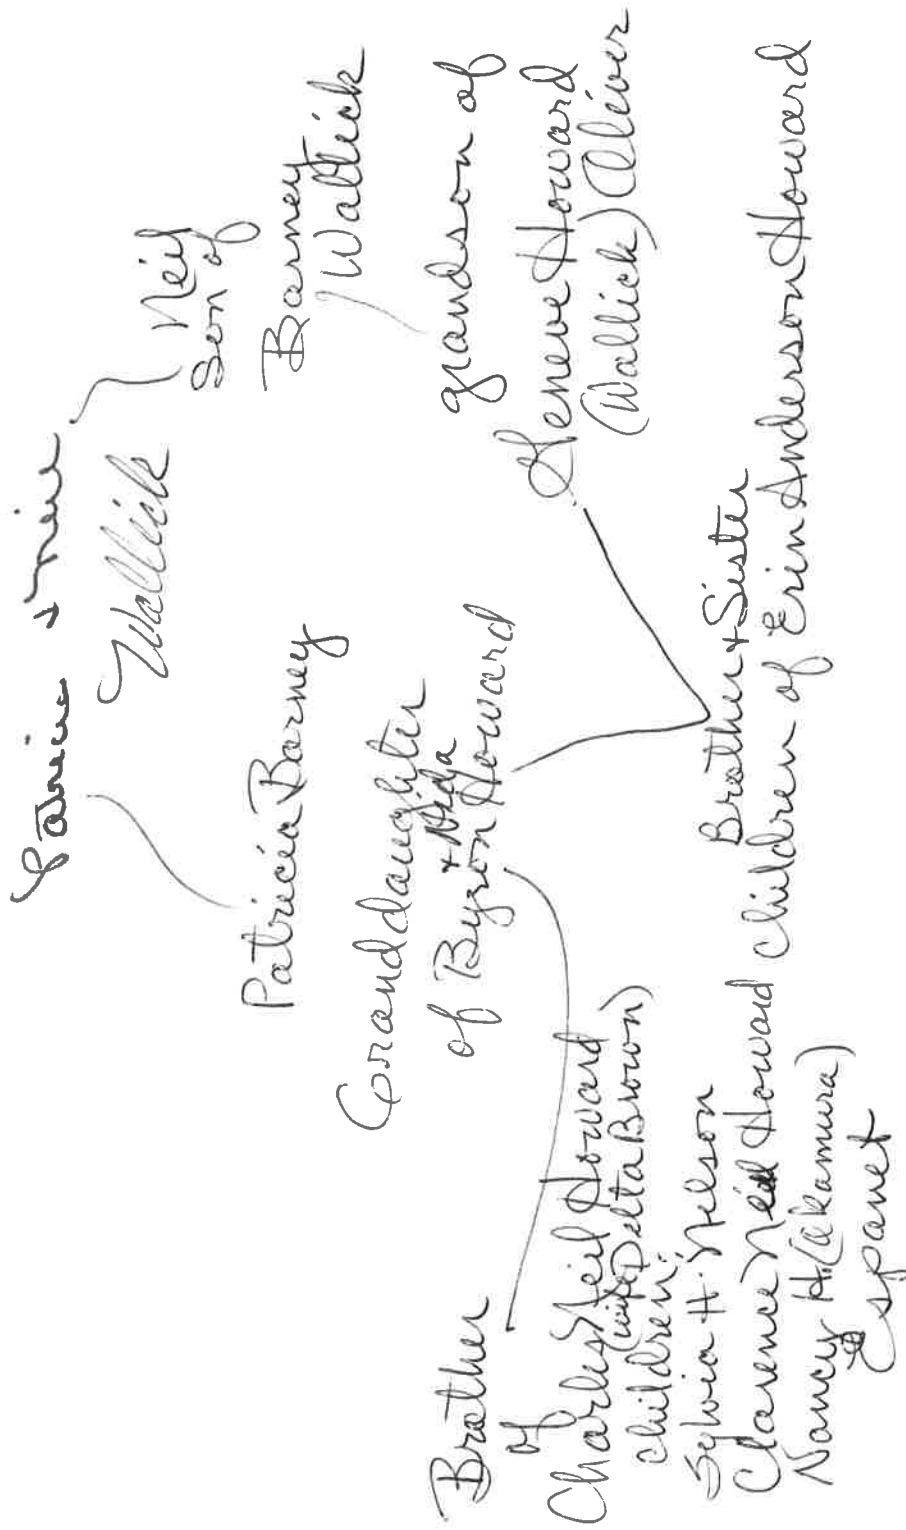 Wallick
Patricia Barney
Granddaughter
+ Nida
of Byron Howard
Neil
Son of
Barney
Wallick
grandson of
Geneve Howard
(Wallick) Oliver
Brother + Sister
children of Erin Anderson Howard
Brother
of
Charles Neil Howard
(wife Delta Brown)
children:
Sylvia H. Nelson
Clarence Neil Howard
Nancy H. (Akamura)
Spanet